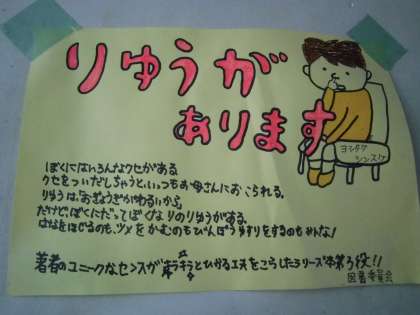 りゆうが
あります
ヨシタケ
シンスケ
ぼくにはいろんなクセがある
クセをついだしちゃうと、いつもお母さんにおこられる。
りゆうは、おぎょうぎがわるいから。
だけど、ぼくにだってぼくなりのりゆうがある。
はなをほじるのも、ツメをかむのもびんぼうゆすりをするのもみんな!
著者のユニークなセンスがキラキラとひかる工夫をこらしたシリーズ本第3役!!
図書委員会